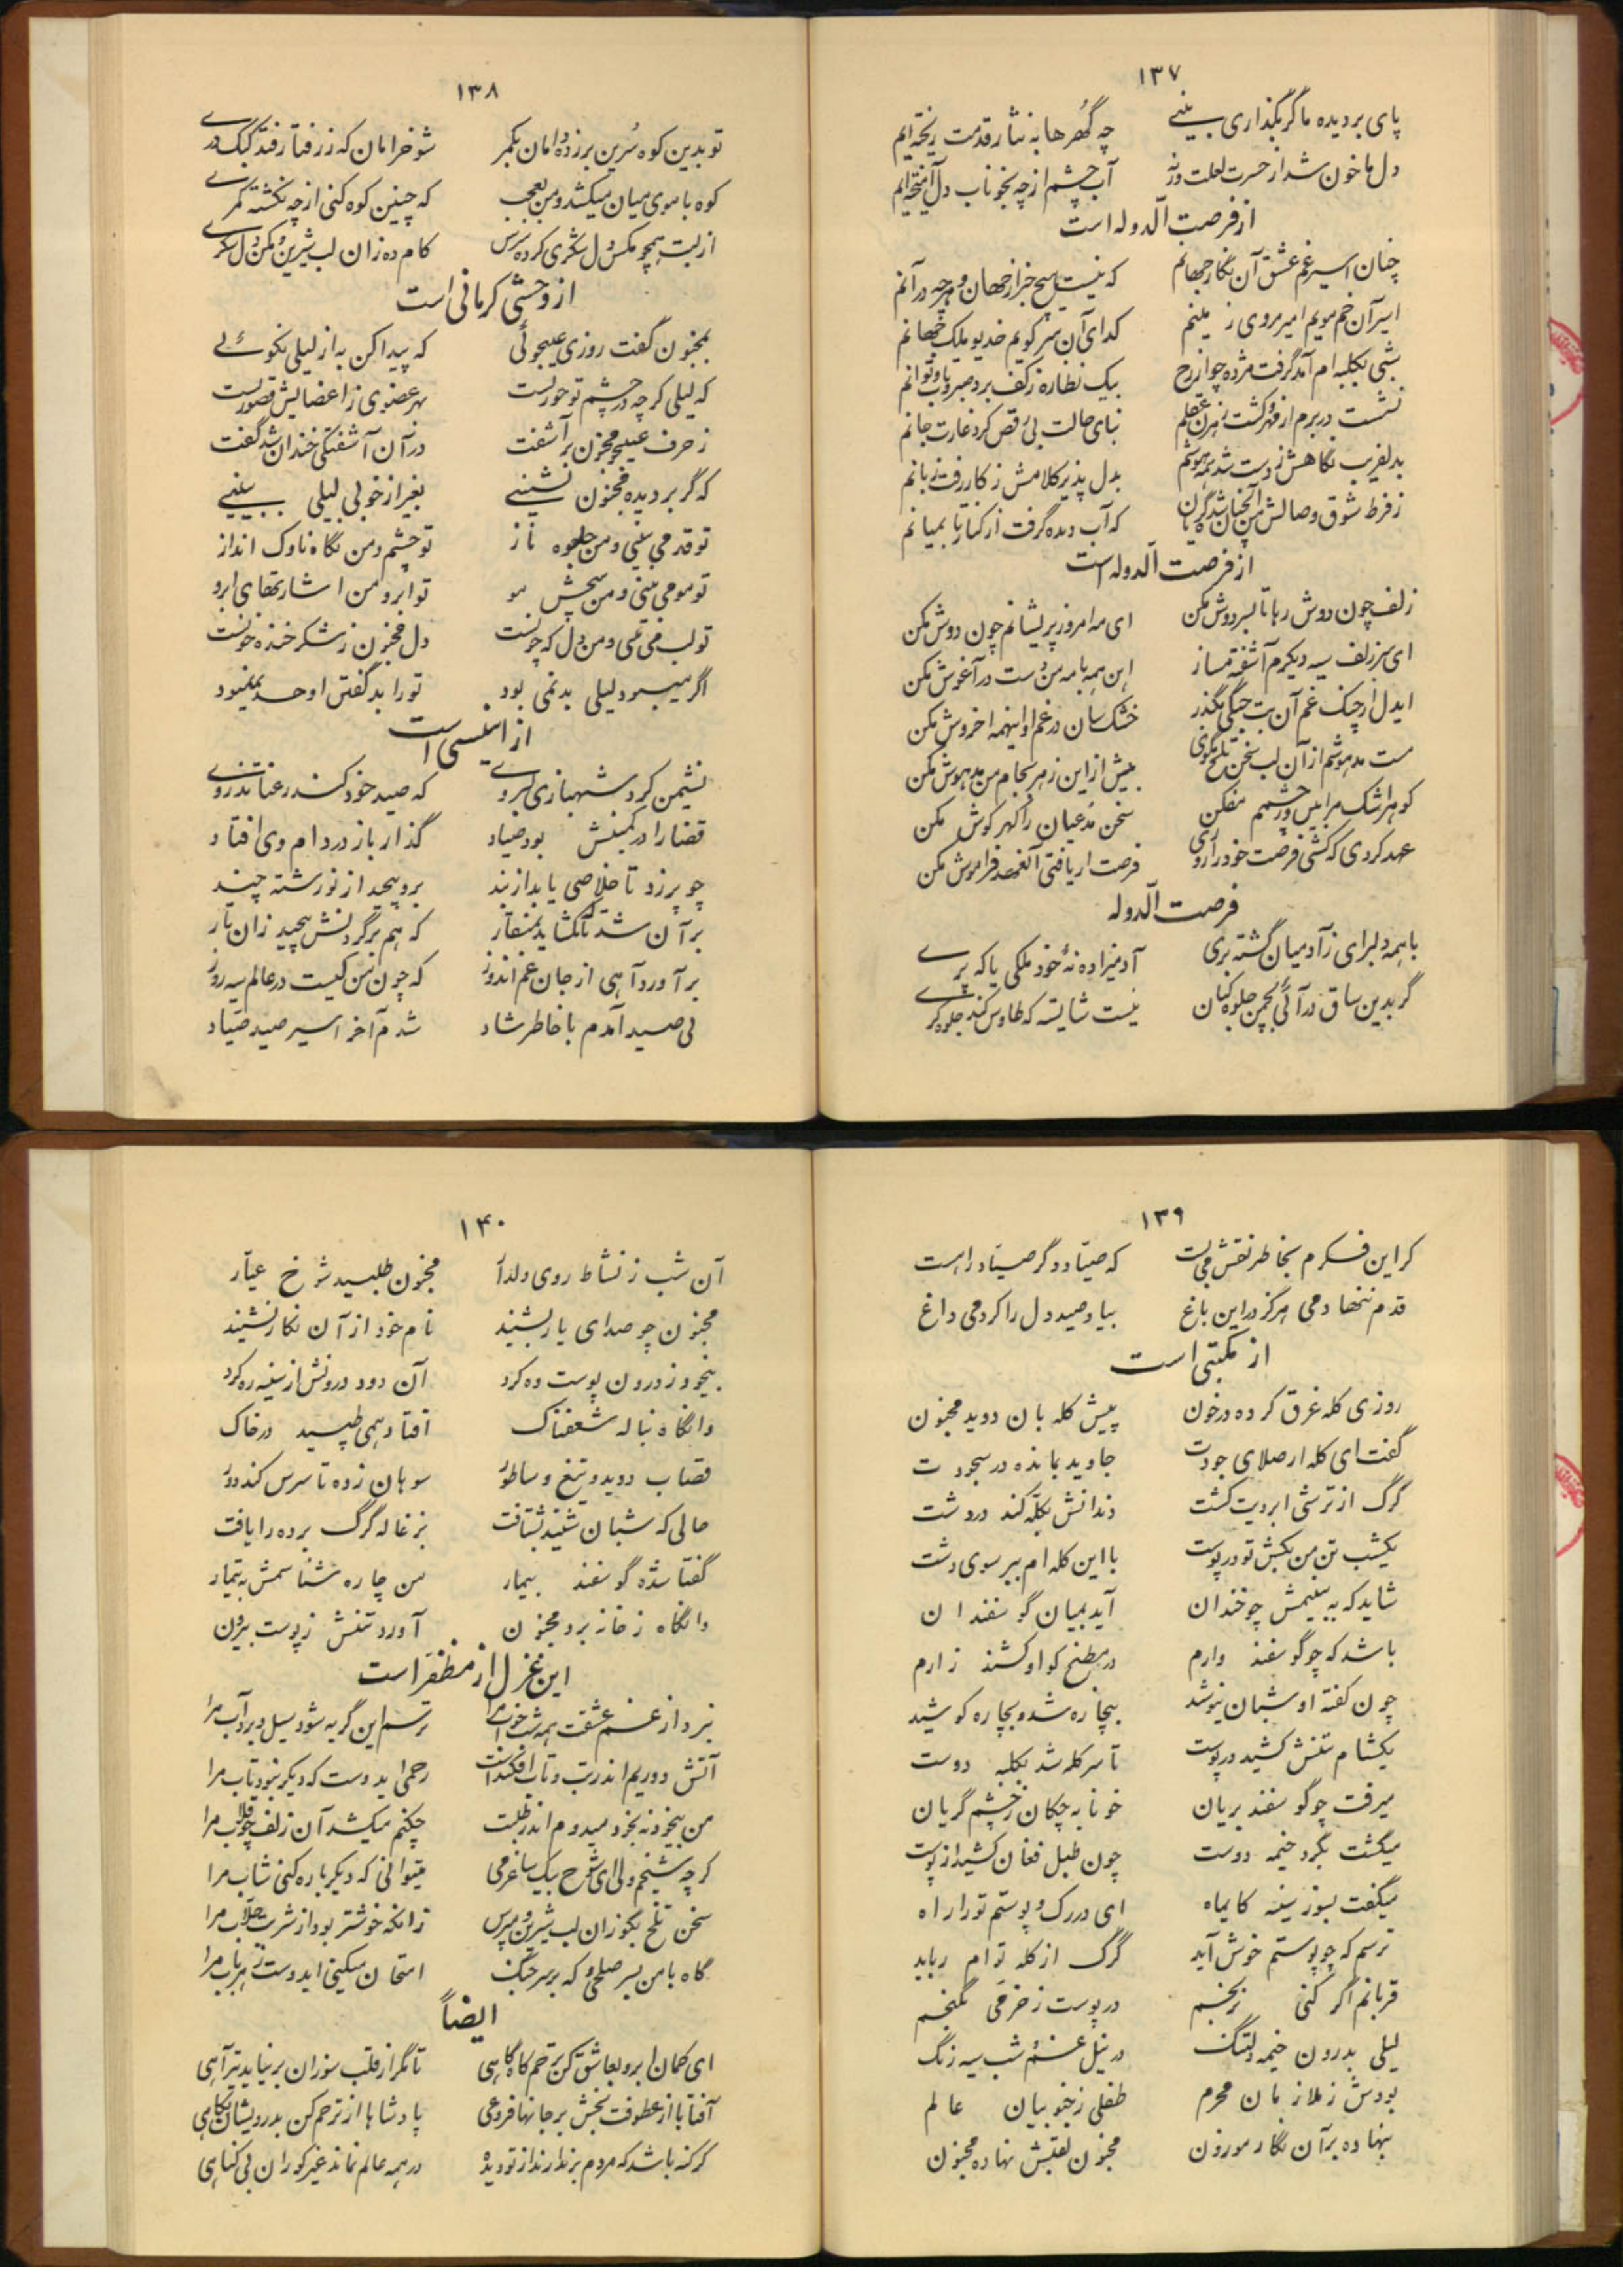 ۱۳۷
پای بر دیده ما گر بگذاری بینی چه گهرها به نثار قدمت ریخته‌ایم
دل ما خون شد از حسرت لعلت ورنه آب چشم از چه بخوناب دل آمیخته‌ایم
از فرصت الدوله است
چنان اسیر غم عشق آن نگار جهانم که نیست هیچ خبر از جهان و هرچه در آنم
اسیر آن خم مویم امیر روی زمینم گدای آن سر کویم خدیو ملک جهانم
شبی بکلبه‌ام آمد گرفت مژده چو از رخ بیک نظاره ز کف برد صبر و تاب و توانم
نشست در برم از مهر و گشت رهزن عقلم بپای حالت بی رقص کرد غارت جانم
بدلفریب نگاهش ز دست شد همه هوشم بدل پذیر کلامش ز کار رفت زبانم
ز فرط شوق وصالش من آنچنان شده گریان که آب دیده گرفت از کنار تا بمیانم
از فرصت الدوله است
زلف چون دوش رها تا بسر دوش مکن ای مه امروز پریشانم چون دوش مکن
ای سر زلف سیه دیگرم آشفته مساز این همه با مه من دست در آغوش مکن
ایدل ار چنگ غم آن بت چنگی مگذر خشک سان در غم او اینهمه اخروش مکن
مست مدهوشم از آن لب سخن تلخ مگوی بیش از این زهر بجام من مدهوش مکن
گوهر اشک مرا بین و ز چشمم مفکن سخن مدعیان را گهر گوش مکن
عهد کردی که کشی فرصت خود را روزی فرصت ار یافتی آنعهد فراموش مکن
فرصت الدوله
با همه دلبرای ز آدمیان گشته بری آدمیزاده نهٔ خود ملکی یا که پری
گر بدین ساق در آئی بچمن جلوه کنان نیست شایسته که طاوس کند جلوه گری
۱۳۸
تو بدین کوه سرین برزده دامان بکمر شو خرامان که ز رفتار فتد کبک دری
کوه با موی میان میکشد و من بعجب که چنین کوه کنی از چه نگشته کمری
از لبت همچو مگس دل شکری کرده هوس کام ده زان لب شیرین و مکن دل شکری
از وحشی کرمانی است
بمجنون گفت روزی عیبجوئی که پیدا کن به از لیلی نکوئی
که لیلی گرچه در چشم تو حوریست بهر عضوی ز اعضایش قصوریست
ز حرف عیبجو مجنون برآشفت در آن آشفتگی خندان شد گفت
که گر بر دیده مجنون نشینی بغیر از خوبی لیلی نبینی
تو قد می بینی و من جلوه ناز تو چشم و من نگاه ناوک انداز
تو مو می بینی و من پیچش مو تو ابرو من اشارتهای ابرو
تو لب می بینی و من دل که چونست دل مجنون ز شکر خنده خونست
اگر میبود لیلی بد نمی بود تو را بد گفتن او حد نمیبود
از انیسی است
نشیمن کرد شهبازی بسروی که صید خود کند رعنا تذروی
قضا را در کمینش بود صیاد گذار باز در دام وی افتاد
چو پر زد تا خلاصی یابد از بند برو پیچید از نو رشته چند
بر آن شد تا گشاید بمنقار که هم بر گردنش پیچید زان تار
برآورد آهی از جان غم اندوز که چون من کیست در عالم سیه روز
پی صید آمدم با خاطر شاد شدم آخر اسیر صید صیاد
۱۳۹
گر این فکرم بخاطر نقش می بست که صیاد دگر صیاد را هست
قدم ننهادمی هرگز در این باغ بیاد صید دل را کردمی داغ
از مکتبی است
روزی کله غرق کرده در خون پیش گله بان دوید مجنون
گفت ای گله ار صلای جودت جاوید بمانده در سجودت
گرگ از ترشی ابرویت گشت دندانش بگله کند در دشت
یکشب تن من بکش تو در پوست با این گله‌ام ببر سوی دشت
شاید که ببینمش چو خندان آید بمیان گوسفندان
باشد که چو گوسفند وارم در مطبخ گو او کشند زارم
چون گفته او شبان نیوشید بیچاره شد و بچاره کوشید
یکشام تنش کشید در پوست تا سر گله شد بکلبه دوست
میرفت چو گوسفند بریان خونابه چکان ز چشم گریان
میگشت بگرد خیمه دوست چون طبل فغان کشید از پوست
میگفت بسوز سینه کایماه ای در رگ و پوستم تو را راه
ترسم که چو پوستم خوش آید گرگ از گله توام رباید
قربانم اگر کنی نرنجم در پوست ز خرمی نگنجم
لیلی بدرون خیمه دلتنگ در نیل غم شب سیه رنگ
بودش ز ملازمان محرم طفلی ز خوبیان عالم
بنهاده بر آن نگار موزون مجنون لقبش نهاده مجنون
۱۴۰
آن شب ز نشاط روی دلدار مجنون طلبید شوخ عیار
مجنون چو صدای یار بشنید نام خود از آن نگار بشنید
بیخود ز درون پوست ره کرد آن دود درونش از سینه ره کرد
وانگاه بناله شغفناک افتاد همی طپید در خاک
قصاب دوید و تیغ و ساطور سوهان زده تا سرش کند دور
حالی که شبان شنید بشتافت بزغاله گرگ برده را یافت
گفتا شده گوسفند بیمار من چاره شناسمش به تیمار
وانگاه ز خانه برد مجنون آورد تنش ز پوست بیرون
این غزل از مظفر است
نبرد از غم عشقت همه شب خواب مرا ترسم این گریه شود سیل و برد آب مرا
آتش دوریم اندر تب و تاب افکندست رحمی ایدوست که دیگر نبود تاب مرا
من بیخود نه بخود میروم اندر طلبت چکنم میکشد آن زلف چو قلاب مرا
گرچه شیخم ولی ای شوخ بیک ساغر می میتوانی که دیگرباره کنی شاب مرا
سخن تلخ بگو زان لب شیرین و مپرس زانکه خوشتر بود از شربت جلاب مرا
گاه با من بسر صلحی و گه بر سر جنگ امتحان میکنی ایدوست ز هر باب مرا
ایضاً
ای کمان ابرو بعاشق کن ترحم گاه گاهی تا مگر از قلب سوزان بر نیاید تیر آهی
آفتابا از عطوفت بخش بر جانها فروغی پادشاها از ترحم کن بدرویشان نگاهی
گر گنه باشد که مردم برندارند از تو دیده در همه عالم نماند غیر کوران بی گناهی